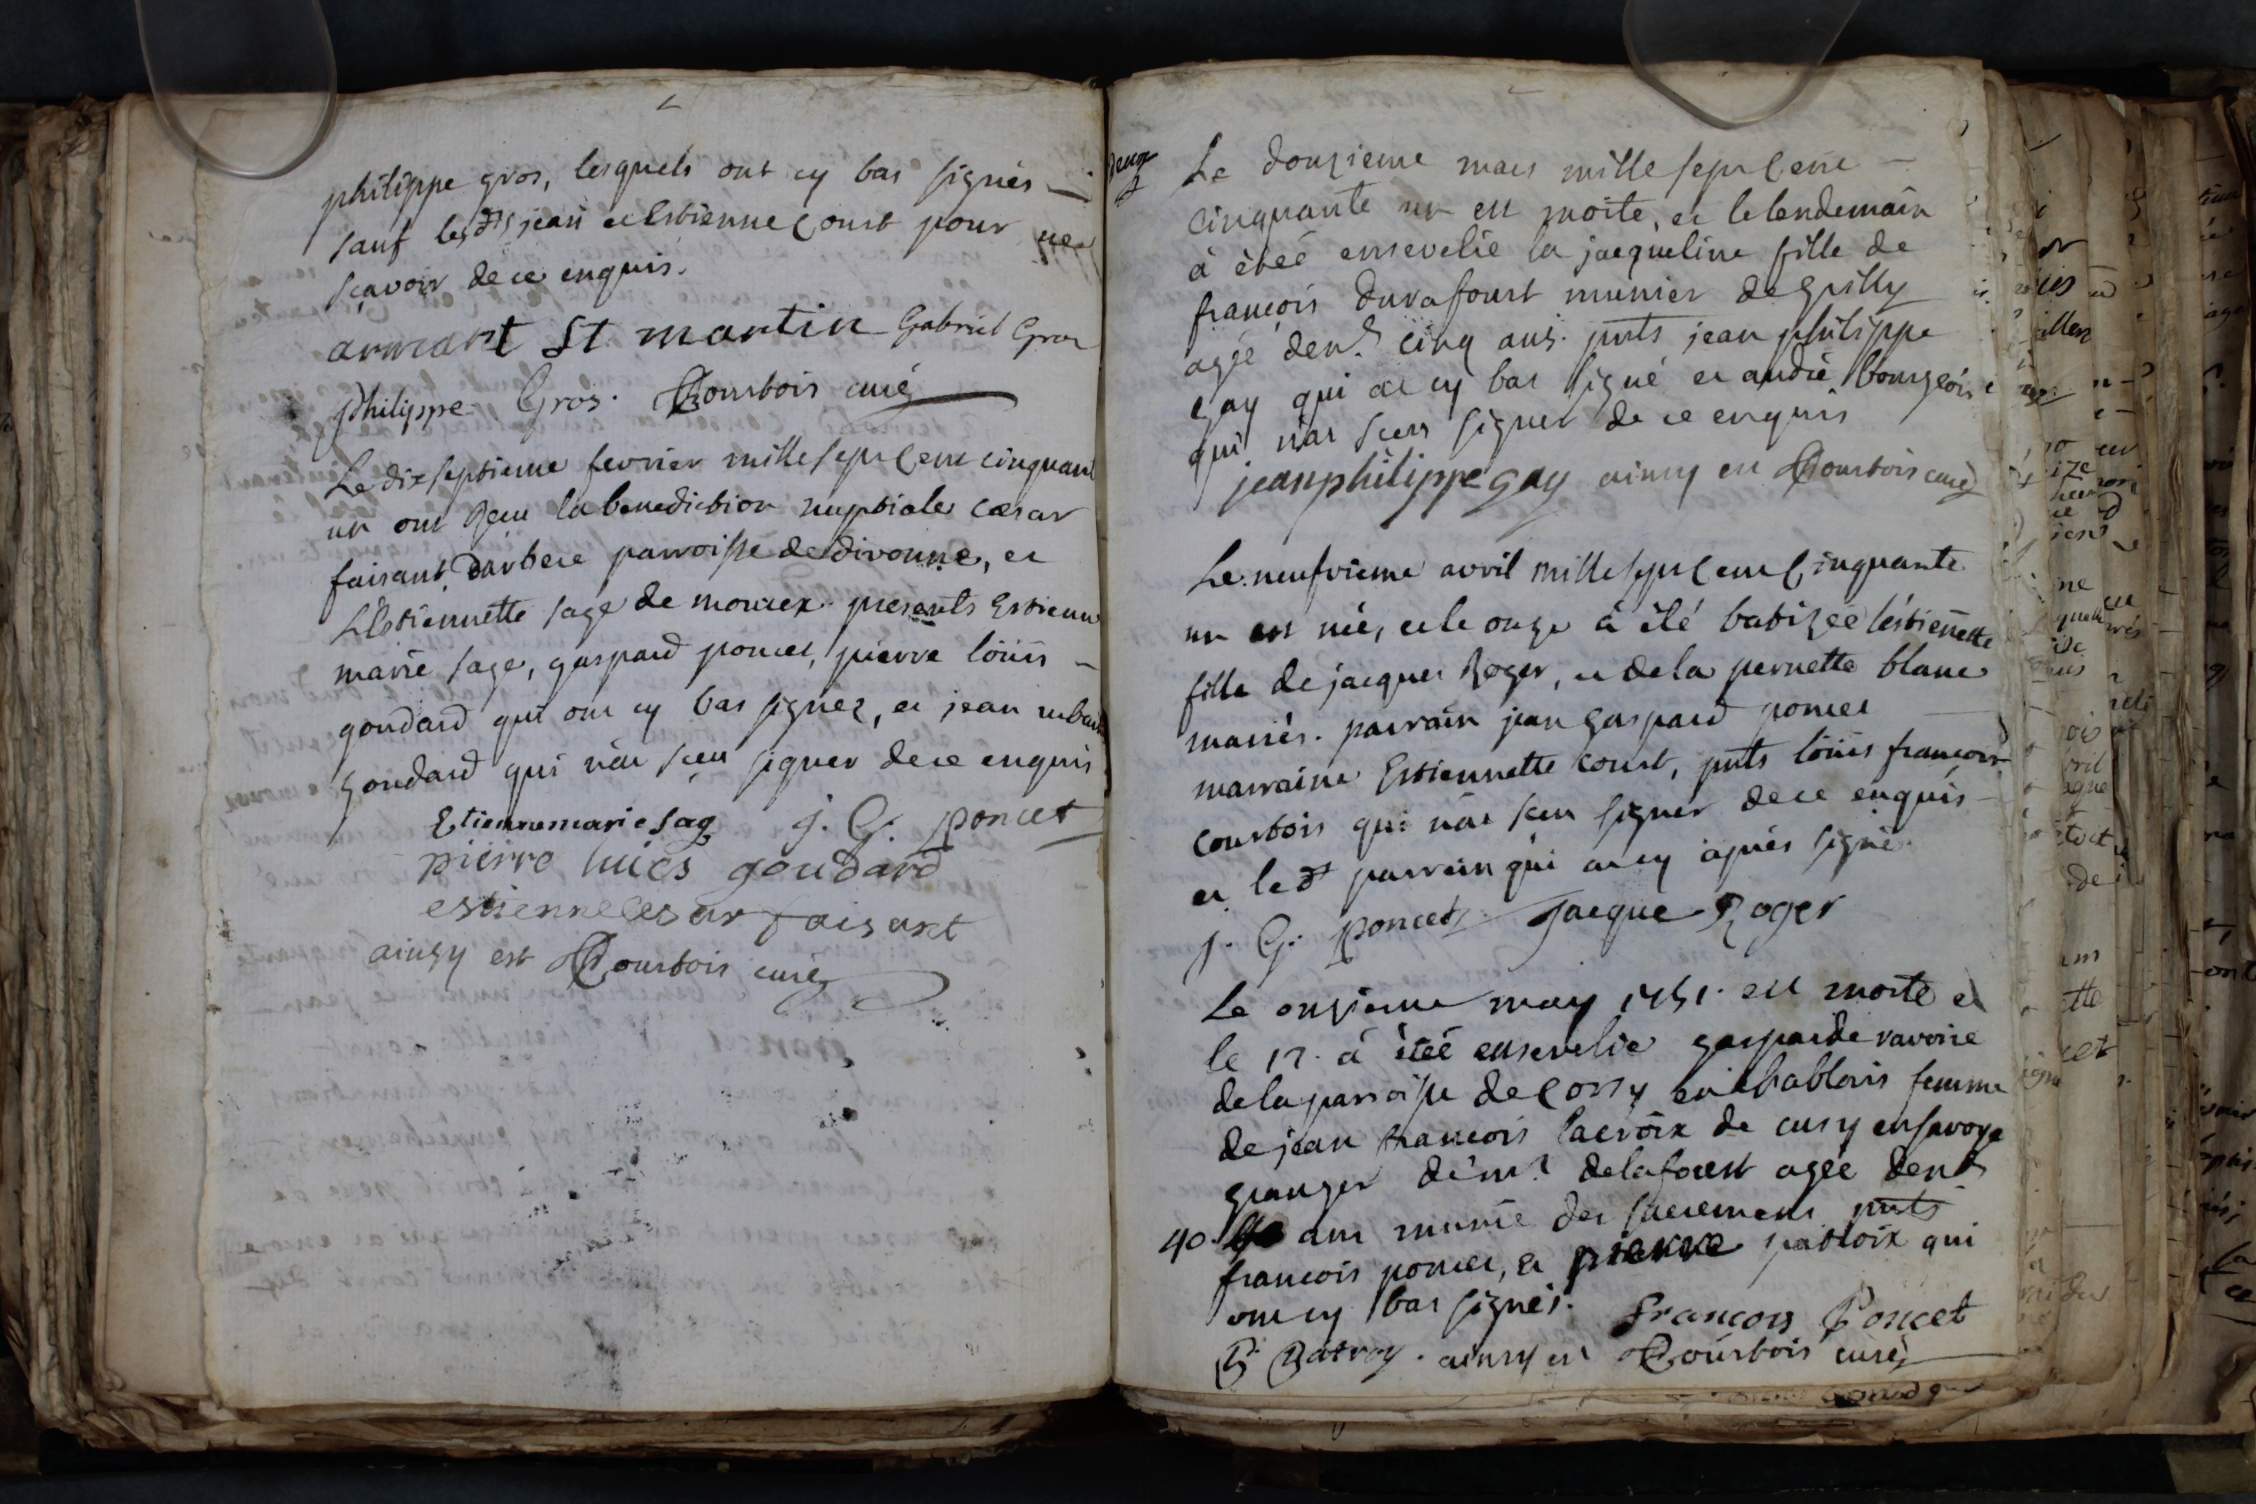 philippe gros, lesquels ont cy bas signés
sauf lesdts jean et Estienne Court pour ne
sçavoir de ce enquis.
armant St martin Gabriel Gros
Philippe Gros. Courtois curé
Le dixseptieme fevrier mille sept cent cinquant
un ont reçu la benediction nuptiale cæsar
faisant darbere parroisse de divonne, et
L'Estiennette sage de mourex presents Estienne
marie sage, gaspard poncet, pierre loüis
goudard qui ont cy bas signez, et jean
goudard qui n'at sceu signer de ce enquis
Etienne marie sage J. G. poncet
pierre luies goudard
estienne cesar faisant
ainsy est Courtois curé
Le douzieme mars mille sept cent
cinquante un est morte, et le lendemain
à êteé ensevelie la jacqueline fille de
françois durafourt munier de grilly
agée denn cinq ans. pnts jean philippe
gay qui at cy bas signé et andré bourgeois
qui n'at sceu signer de ce enquis
jean philippe gay ainsy est Courtois curé
Le neufvieme avril mille sept cent cinquante
un est née, et le onze à été batizée l'éstiennette
fille de jacques Roger, et de la pernette blanc
mariés. parrain jean gaspard poncet
marraine Estiennette Court, pnts loüis francois
courtois qui n'at sceu signer de ce enquis
et ledt parrain qui at cy aprés signé.
J. G. poncet Jacque Roger
Le onzieme may 1751. est morte et
le 12. à êteé ensevelie gasparde ravoire
de la parroisse de Cossy en chablais femme
de jean francois lacroix de cusy en savoye
granger de mr delaforest agée denn
40. ans munie des sacremens pnts
francois poncet, et pierre patroix qui
ont cy bas signés. francois Poncet
P. Patroy. ainsy est Courtois curé